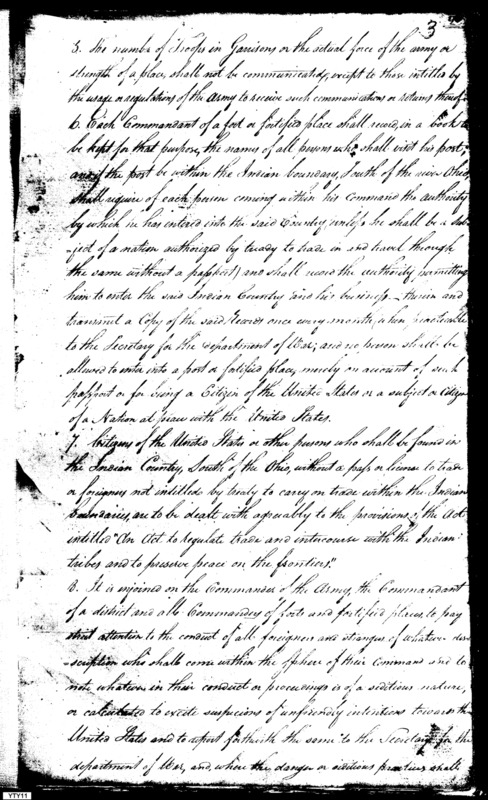 3
5. The number of Troops in Garrisons or the actual force of the army or
strength of a place, shall not be communicated, except to those intitled by
the usage or regulations of the Army to receive such communications or returns thereof.
6. Each Commandant of a fort or fortified place shall record, in a book to
be kept for that purpose, the names of all persons who shall visit his post,
and if the post be within the Indian boundary, South of the river Ohio,
shall require of each person coming within his Command the authority
by which he has entered into the said Country (unless he shall be a sub-
-ject of a nation authorized by treaty to trade in and travel through
the same without a passport) and shall record the authority permitting
him to enter the said Indian Country and his business therein and
transmit a Copy of the said Records once every month, when practicable
to the Secretary for the department of War; and no person shall be
allowed to enter into a post or fortified place, merely on account of such
passport or for being a Citizen of the United States or a subject or citizen
of a Nation at peace with the United States.
7. Citizens of the United States or other persons who shall be found in
the Indian Country, South of the Ohio, without a pass or license to trade
or foreigners not intitled by treaty to carry on trade within the Indian
boundaries, are to be dealt with agreeably to the provisions of the Act
intitled "An Act to regulate trade and intercourse with the Indian
tribes and to preserve peace on the frontiers."
8. It is enjoined on the Commander of the Army, the Commandant
of a district and all Commanders of forts and fortified places, to pay
strict attention to the conduct of all foreigners and strangers of whatever des-
-cription who shall come within the sphere of their command and to
note whatever in their conduct or proceedings is of a seditious nature,
or calculated to excite suspicions of unfriendly intentions towards the
United States and to report forthwith the same to the Secretary for the
department of War, and, where the danger or seditious practices shall
YTY11